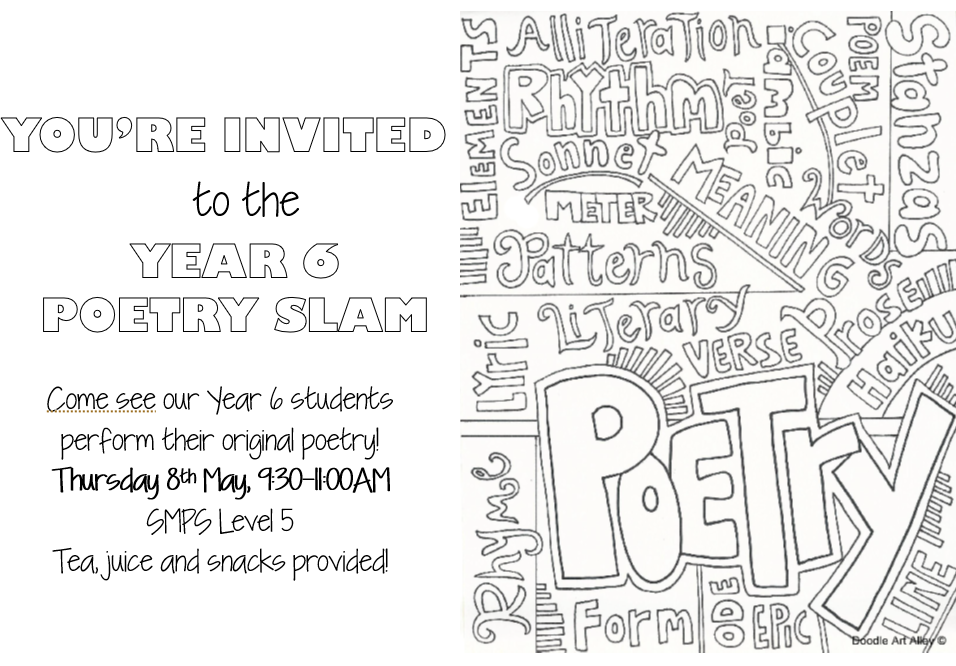 YOU'RE INVITED
to the
YEAR 6
POETRY SLAM
Come see our Year 6 students
perform their original poetry!
Thursday 8th May, 9:30-11:00AM
SMPS Level 5
Tea, juice and snacks provided!
ELEMENTS
AlliTeraTion
RhYthm
Poet
iambic
Couplet
POEM
Stanzas
Sonnet
METER
MEANING
Words
Patterns
LiTerary
VERSE
Prose
Haiku
LYric
PoeTry
Rhyme
Form
ODE
EPic
LINE
Doodle Art Alley ©